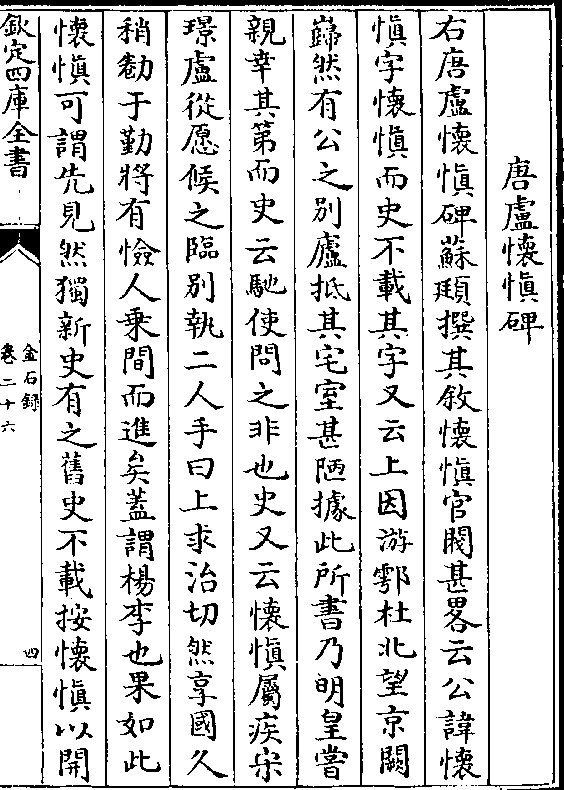 唐盧懷慎碑
右唐盧懷慎碑蘇頲撰其敘懷慎官閥甚畧云公諱懷
慎字懷慎而史不載其字又云上因游鄠杜北望京闕
巋然有公之别廬抵其宅室甚陋據此所書乃明皇嘗
親幸其第而史云馳使問之非也史又云懷慎屬疾宋
璟盧從愿候之臨别執二人手曰上求治切然享國久
稍勌于勤將有憸人乗間而進矣蓋謂楊李也果如此
懷慎可謂先見然獨新史有之舊史不載按懷慎以開
欽定四庫全書
金石録
卷二十六
四